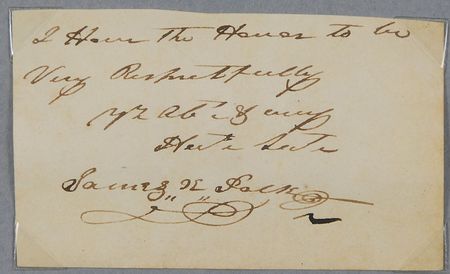 I Have the Honor to be
Very Respectfully
Yr Obt &
James K Polk